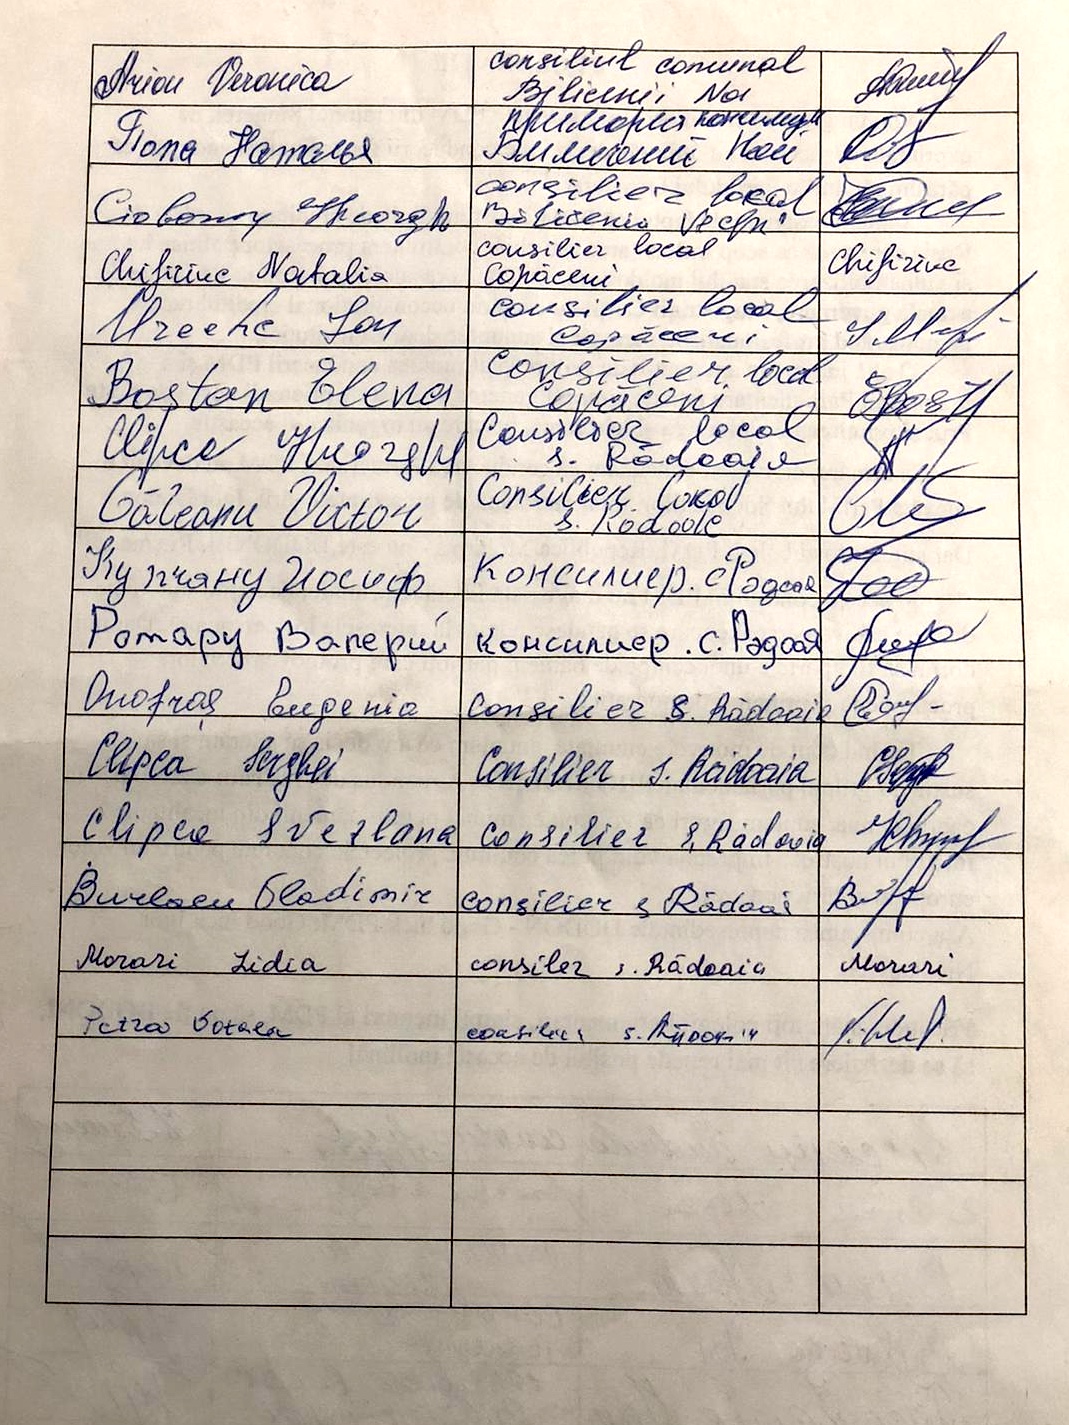 Arion Veronica
consiliul comunal
Bilicenii Noi
Попа Наталья
примэрия
Биличений Ной
consilier local
Bilicenii Vechi
Chifiriuc Natalia
consilier local
Copăceni
Chifiriuc
Ureche Ion
consilier local
Copăceni
Bostan Elena
Consilier local
Copăceni
Clipca Gheorghe
Consilier local
s. Rădoaia
Găleanu Victor
Consilier local
s. Rădoaie
Иосиф
Консилиер. с Рэдоая
Ротару Валерий
консилиер. с. Рэдоая
Onofraș Eugenia
consilier s. Rădoaia
Clipca Serghei
Consilier s. Rădoaia
Clipca Svetlana
consilier s. Rădoaia
Burlacu Vladimir
consilier s Rădoai
Morari Lidia
consiler s. Rădoaia
Morari